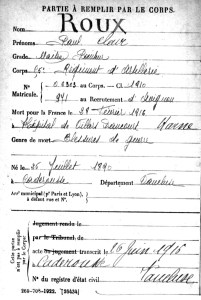 PARTIE À REMPLIR PAR LE CORPS.
ROUX
Nom
Prénoms Paul
Grade Maître Pointeur
Corps 95e Régiment d'Artillerie
N° 02303 au Corps. — Cl. 1910
Matricule. 941 au Recrutement d'Avignon
Mort pour la France le 29 Février 1916
à Hôpital de Villers Daucourt Marne
Genre de mort Blessures de guerre
Né le 25 Juillet 1890
à Caderousse Département Vaucluse
Arrt municipal (pr Paris et Lyon),
à défaut rue et N°.
Cette partie
n'est pas à remplir
par le Corps.
Jugement rendu le
par le Tribunal de
acte ou jugement transcrit le 16 Juin 1916
à Caderousse
Vaucluse
N° du registre d'état civil